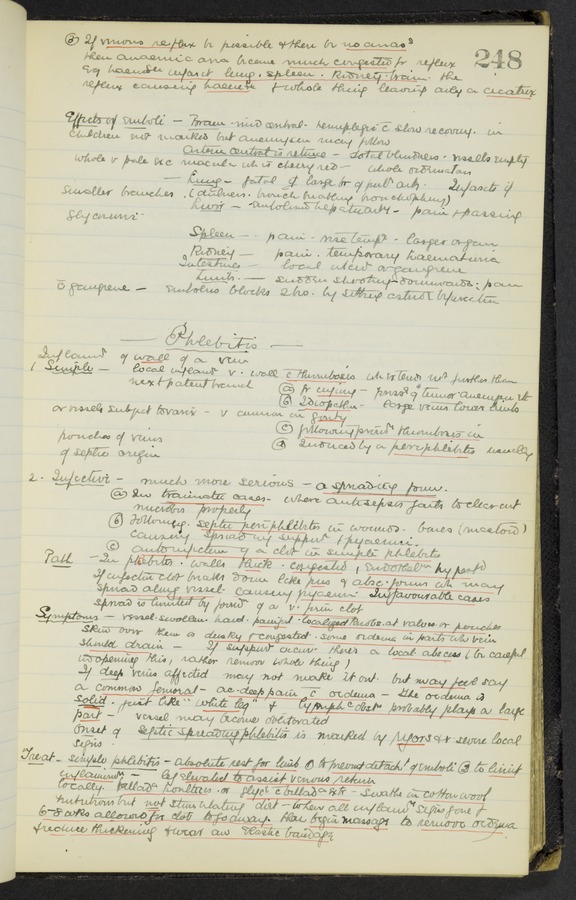 248
③ If venous reflux be possible & there be no anas³
then anaemic area become much congested fr reflux
Eg haem infarct lung . spleen . Kidney . brain . the
reflux causing & whole thing leaving only a cicatrix
Effects of Emboli — Brain - mid cerebral - hemiplegia c̄ slow recovery . in
children not marked but aneurysm may follow
Arteria centralis retinae - Total blindness . vessels empty
whole v pale exc macula wh is cherry red —
— Lung — fatal if large br of pul arty . Infarcts if
smaller branches . (dulness . bronch breathing bronchophony)
Liver — pain & passing
glycosuria -
Spleen — . pain . rise temp . larger organ
Kidney — pain . temporary haematuria
Intestines — local ulcer or gangrene
Limbs . — sudden shooting downwards : pain
→ gangrene — embolus blocks 2 bv . by sitting astride bifurcation
— Phlebitis —
Inflamⁿ of wall of a vein
1 Simple — local inflamⁿ v . wall c̄ thrombosis wh extends not further than
next patent branch
ⓐ fr injury - press of tumor aneurysm etc
ⓑ Idiopathic - large veins lower limbs
or vessels subject to varix - v common in gouty
ⓒ following prim thrombosis in
pouches of veins
ⓓ Induced by a periphlebitis usually
of septic origin
2 . Infective - much more serious — a spreading form .
ⓐ In traumatic cases - where antisepsis fails to clear out
microbes properly
ⓑ Following . septic periphlebitis in wounds - bones (mastoid)
causing spreading suppurⁿ & pyaemia .
ⓒ auto infection of a clot in simple phlebitis
Path — In phlebitis . walls thick . congested ,
If infective clot breaks down like pus & absc . forms wh may
spread along vessel causing pyaemia In favourable cases
spread is limited by formⁿ of a v . firm clot
Symptoms — vessel swollen hard . painful . localized knobs . at valves or pouches
Skin over them is dusky & congested - some oedema in parts wh vein
should drain — If suppurⁿ occur there's a local abscess (be careful
in opening this, rather remove whole thing)
If deep veins affected may not make it out . but may feel say
a common femoral — ac . deep pain c̄ oedema — the oedema is
solid . just like "white leg" & lymphc obstⁿ probably plays a large
part — vessel may become obliterated
Onset of Septic Spreading phlebitis is marked by rigors & severe local
signs
Treat — simple phlebitis — absolute rest for limb ① to prevent detacht of emboli ② to limit
inflammⁿ — leg elevated to assist venous return
locally . bellad fomentns . or glyc c̄ bellad — swathe in cotton wool
nutritious but not stimulating diet — when all inflamⁿ signs gone &
6-8 wks allowed for clot to go away . then begin massage to remove oedema
& reduce thickening & wear an Elastic bandage